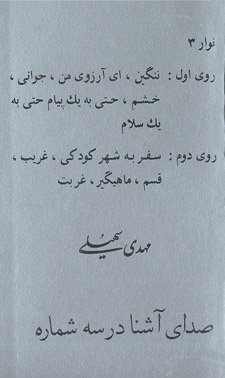 نوار ۳
روی اول : ننگین ، ای آرزوی من ، جوانی ،
خشم ، حتی به یك پیام حتی به
یك سلام
روی دوم : سفر به شهر کودکی ، غریب ،
قسم ، ماهیگیر ، غربت
مهدی سهیلی
صدای آشنا در سه شماره